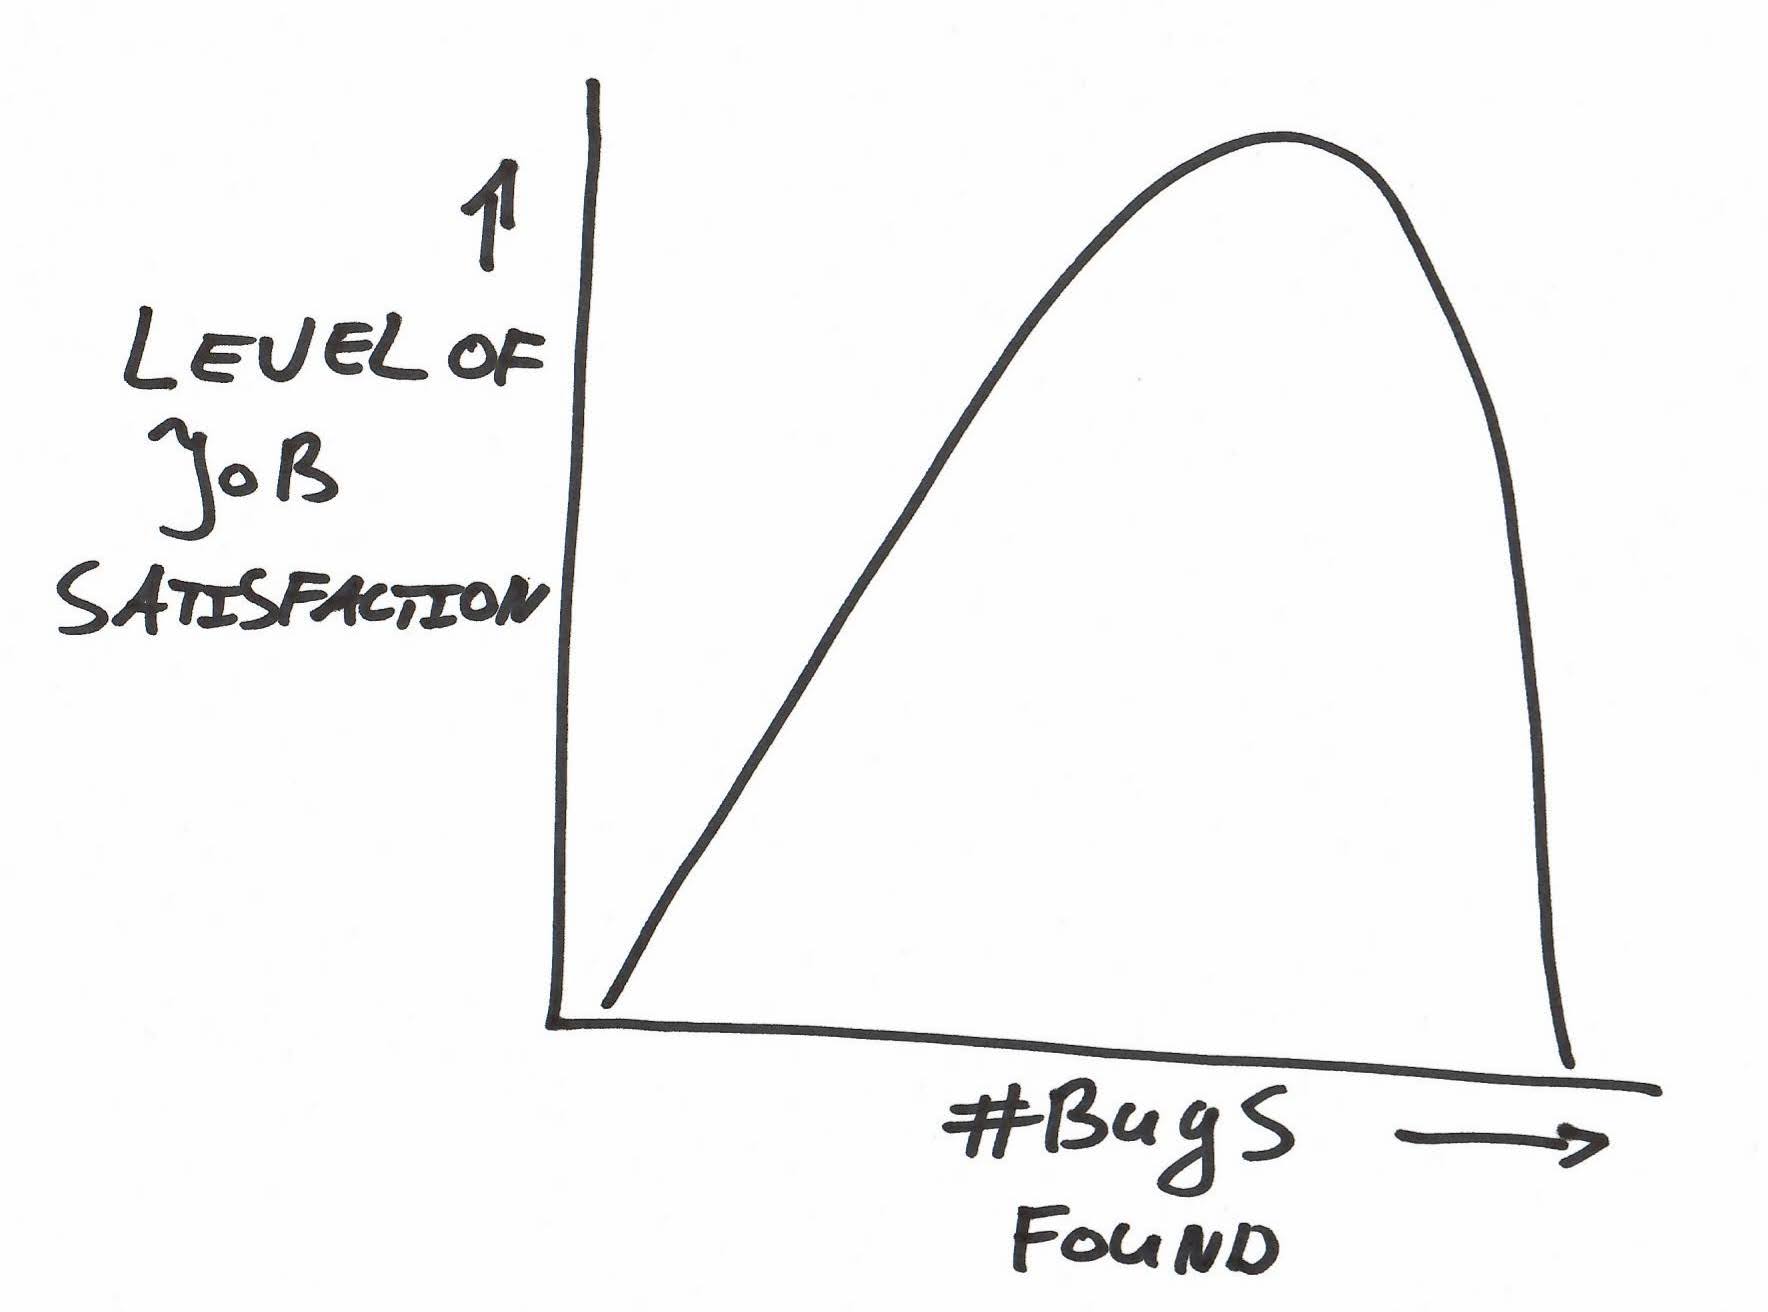 LEVEL OF
JOB
SATISFACTION
#BugS
FOUND